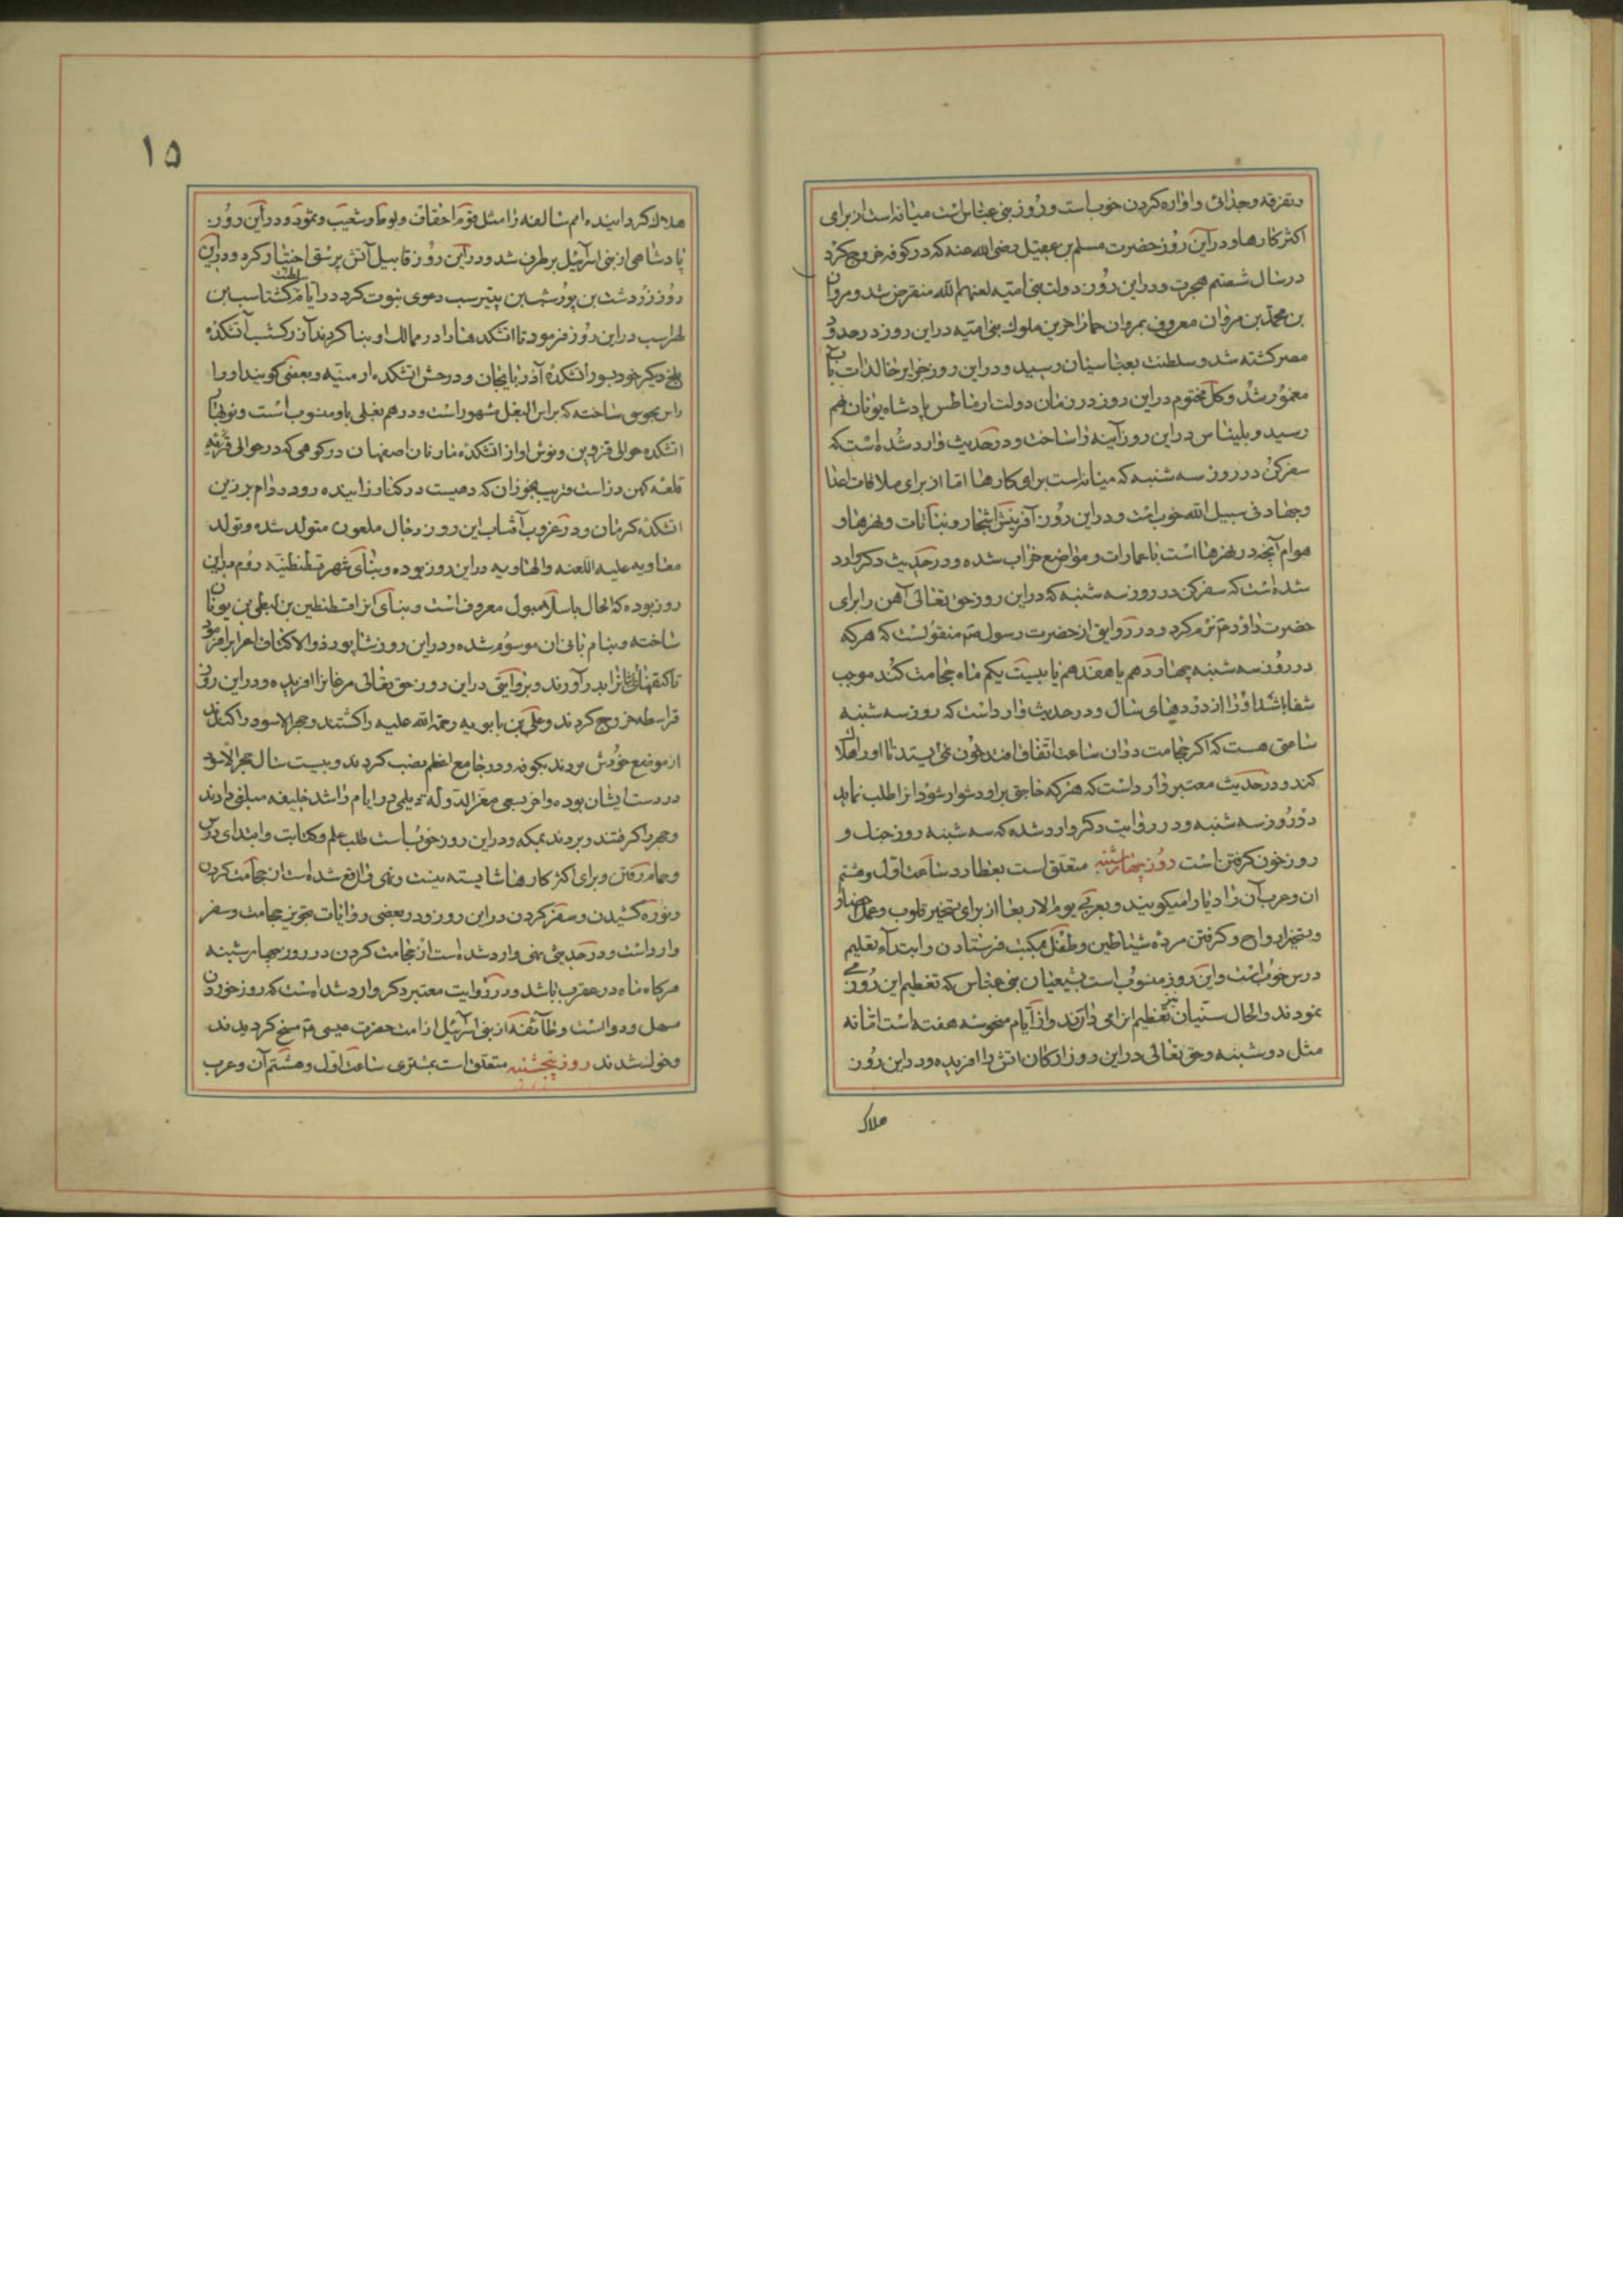 وتفرقه وجدائی واواره کردن خوب است وروز بنی عباس است میانه است از برای
اکثر کارها ودر این روز حضرت مسلم بن عقیل رضی الله عنه که در کوفه خروج کرد
در سال شصتم هجرت ودر این روز دولت بنی امیه لعنهم الله منقرض شد ومروان
بن محمد بن مروان معروف بمروان حمار اخرین ملوک بنی امیه در این روز در حدود
مصر کشته شد وسلطنت بعباسیان رسید ودر این روز جزایر خالدات
معمور شد وکل مختوم در این روز در زمان دولت ارطاطس پادشاه یونان بهم
رسید وبلیناس در این روز آینه را ساخت ودر حدیث وارد شده است که
سفر کن در روز سه شنبه که میانه است برای کارها اما از برای ملاقات اعدا
وجهاد فی سبیل الله خوب است ودر این روز آفرینش اشجار ونباتات ونهرها و
هوام آنچه در نهرها است با عمارات ومواضع خراب شده ودر حدیث دکر وارد
شده است که سفر کن در روز سه شنبه که در این روز حق تعالی آهن را برای
حضرت داود ع نرم کرد ودر روایتی از حضرت رسول ص منقولست که هر که
در روز سه شنبه چهاردهم یا هفدهم یا بیست یکم ماه حجامت کند موجب
شفا باشد او را از دردهای سال ودر حدیث وارد است که روز سه شنبه
ساعتی هست که اکر حجامت در ان ساعت اتفاق افتد خون نمی ایستد تا او را هلاک
کند ودر حدیث معتبر وارد است که هر که حاجتی بر او دشوار شود انرا طلب نماید
در روز سه شنبه ودر روایت دکر وارد شده که سه شنبه روز جنک و
روز خون کرفتن است روز چهارشنبه متعلق است بعطارد ساعت اول وهشتم
ان وعرب آن را دبار میکویند وبعربی یوم الاربعا از برای تسخیر قلوب وعمل
وتسخیر ارواح وکرفتن مرده شیاطین وطفل بمکتب فرستادن وابتداء تعلیم
درس خوب است واین روز منسوب است بشیعیان بنی عباس که تعظیم این روز می
نمودند والحال سنیان نیز تعظیم انرا می دارند واز ایام منحوسه هفته است اما نه
مثل دوشنبه وحق تعالی در این روز ارکان اتش را افریده ودر این روز
هلاک
۱۵
هلاک کردانیده امم سالفه را مثل قوم احقاف ولوط وشعیب وثمود ودر این روز
پادشاهی از بنی اسرائیل برطرف شد ودر این روز قابیل آتش پرستی اختیار کرد ودر این
روز زردشت بن پورشب بن پیترسب دعوی نبوت کرد در ایام سلطنت کشتاسب بن
لهراسب در این روز فرمود تا اتشکده ها را در ممالک او بنا کردند آذر کشب آتشکده
بلخ دیکر خود بسوز اتشکده آذربایجان ودر خش اتشکده ارمنیه وبعضی کویند او را
راس مجوسی ساخته که براس البغل مشهور است ودرهم بغلی باو منسوب است ونوبهار
اتشکده حوالی قزوین ونوش اواز اتشکده مارنان اصفهان در کوهی که در حوالی قریه
قلعه کهن دز است قریب بجوزان که دهیست در کنار زاینده رود درام برزین
اتشکده کرمان ودر غروب آفتاب این روز دجال ملعون متولد شده وتولد
معاویه علیه اللعنه والهاویه در این روز بوده وبنای شهر قسطنطنیه روم در این
روز بوده که الحال باسلامبول معروف است وبنای انرا قسطنطین بن یونان
ساخته وبنام بانی ان موسوم شده ودر این روز شاپور ذو الاکتاف اعراب را فرمود
تا کتفهای ایشانرا بدر آوردند وبروایتی در این روز حق تعالی مرغانرا افریده ودر این روز
قرامطه خروج کردند وعلی بن بابویه رحمة الله علیه را کشتند وحجر الاسود را کندند
از موضع خودش بردند بکوفه ودر جامع اعظم نصب کردند وبیست سال حجر الاسود
در دست ایشان بوده واخر بسعی معز الدوله دیلمی در ایام راشد خلیفه مبلغی دادند
وحجر را کرفتند وبردند بمکه ودر این روز خوب است طلب علم وکتابت وابتدای درس
وحمام رفتن وبرای اکثر کارها شایسته نیست ونهی واقع شده است از حجامت کردن
ونوره کشیدن وسفر کردن در این روز ودر بعضی روایات تجویز حجامت وسفر
وارد است ودر حدیثی نهی وارد شده است از حجامت کردن در روز چهارشنبه
هر کاه ماه در عقرب باشد ودر روایت معتبر دکر وارد شده است که روز خوردن
مسهل ودوا است وطائفه از بنی اسرائیل از امت حضرت عیسی ع مسخ کردیدند
وخوک شدند روز پنجشنبه متعلق است بمشتری ساعت اول وهشتم آن وعرب